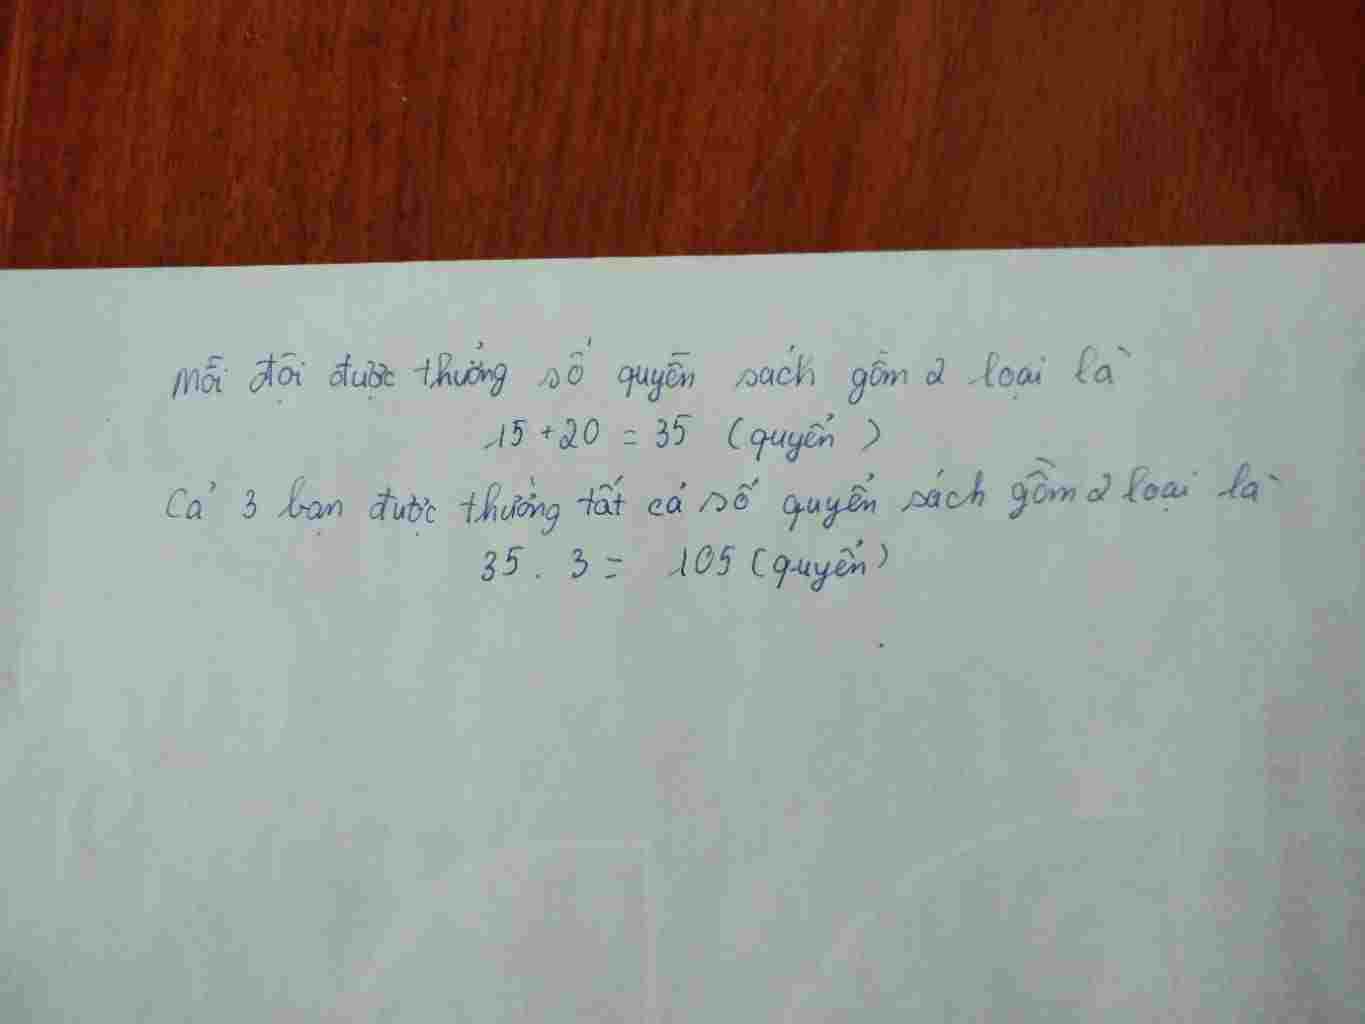 Mỗi đội được thưởng số quyển sách gồm 2 loại là
15 + 20 = 35 (quyển)
Cả 3 bạn được thưởng tất cả số quyển sách gồm 2 loại là
35 . 3 = 105 (quyển)